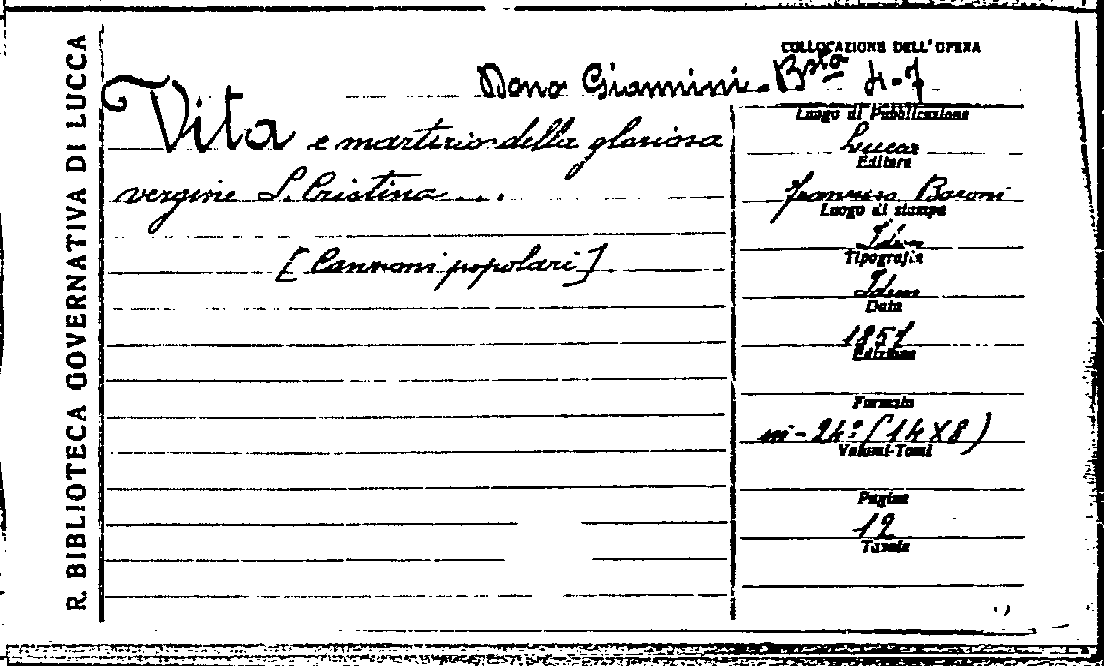 R. BIBLIOTECA GOVERNATIVA DI LUCCA
COLLOCAZIONE DELL'OPERA
Dono Giannini - Bsta 4-7
Vita e martirio della gloriosa
vergine S. Cristina....
[Canzoni popolari]
Luogo di Pubblicazione
Lucca
Editore
Francesco Baroni
Luogo di stampa
Idem
Tipografia
Idem
Data
1857
Edizione
Formato
in-24º (14X8)
Volumi-Tomi
Pagine
12
Tavole